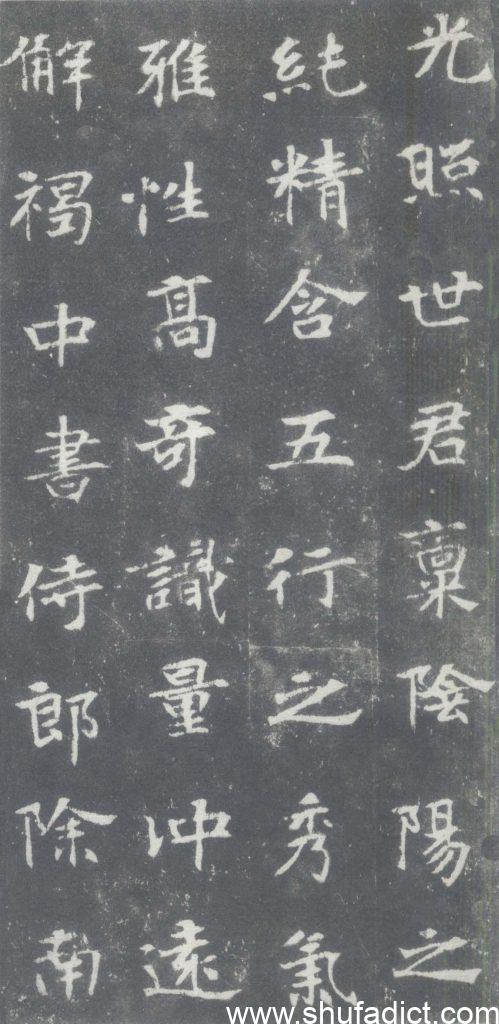 光照世君稟陰陽之
純精含五行之秀氣
雅性高奇識量沖遠
解褐中書侍郎除南
www.shufadict.com